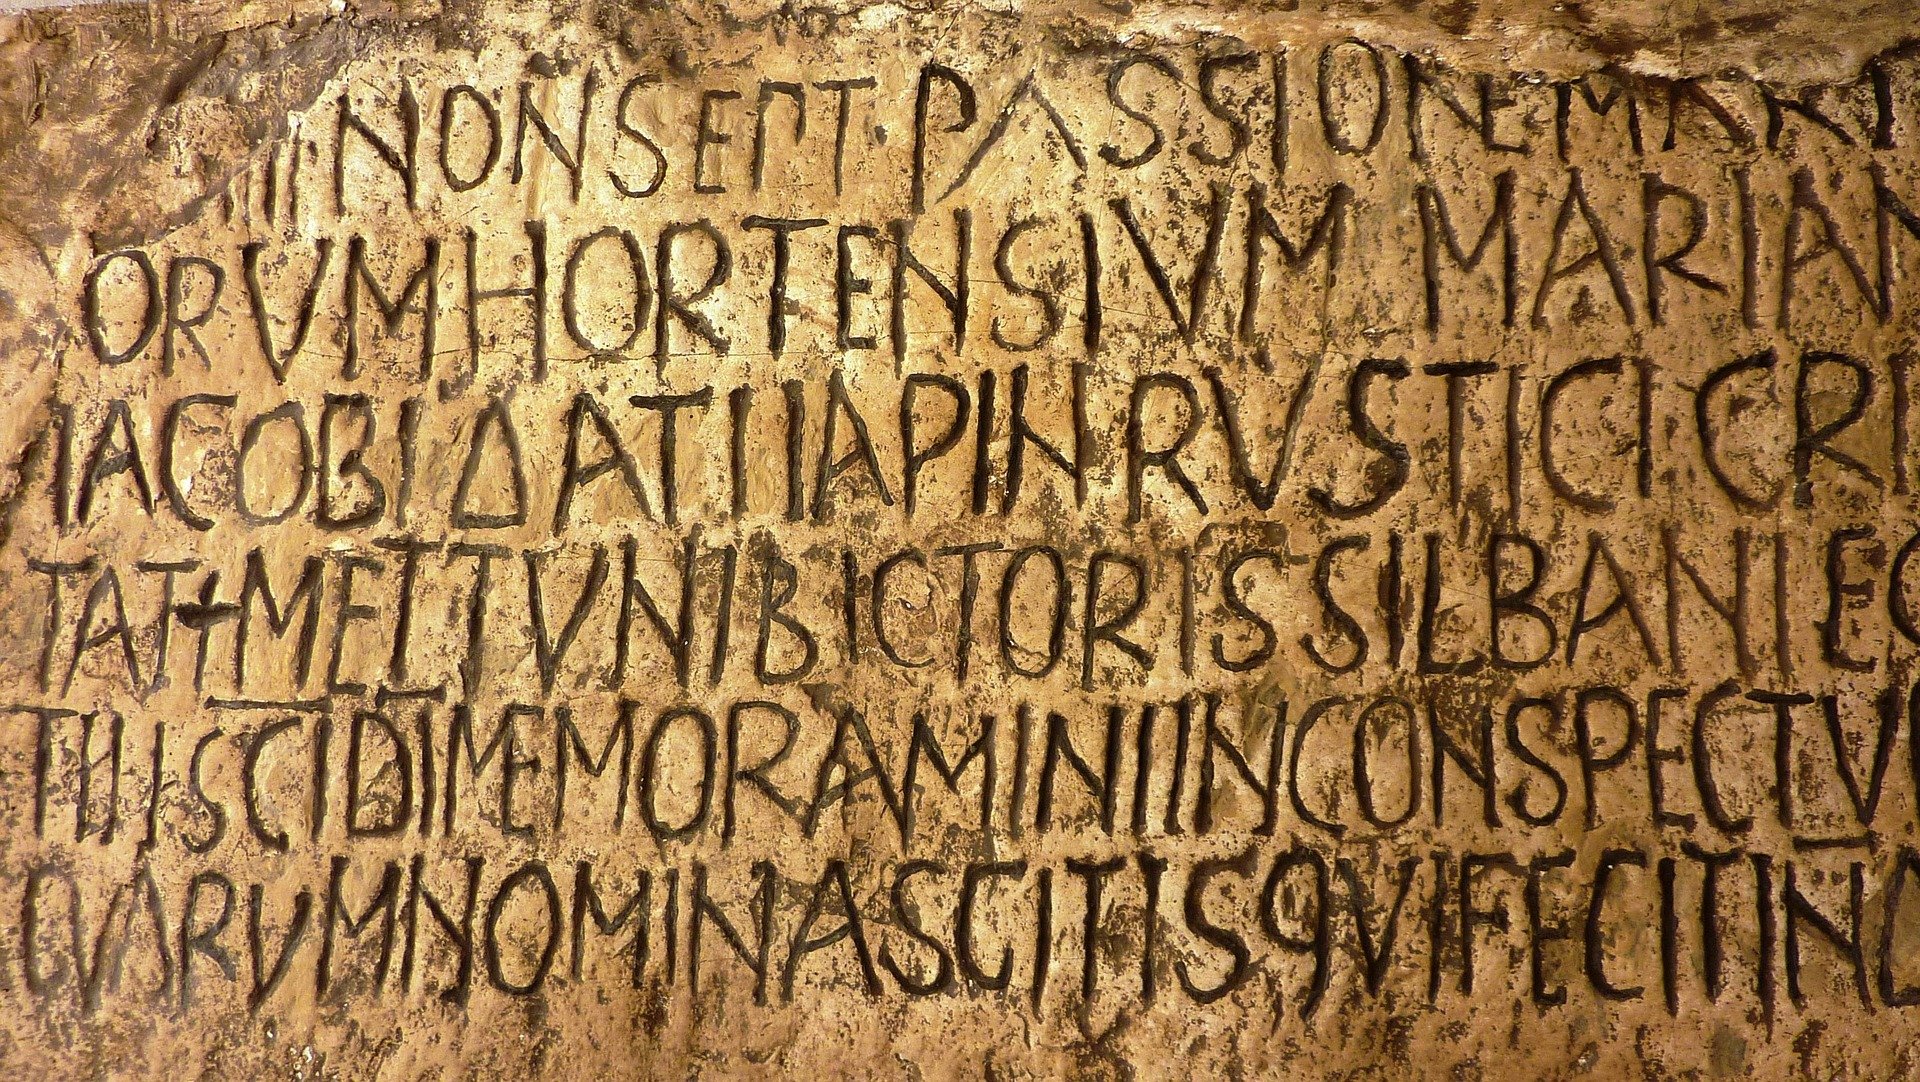 III NON SEPT · PASSIONE MARTI
ORVM HORTENSIVM MARIAN
IACOBI DATI IAPIN RVSTICI CRI
TATI METTVNI BICTORIS SILBANI EG
TII SCI DI MEMORAMINI IN CONSPECTV
QVARVM NOMINA SCIT IS QVI FECIT IN D